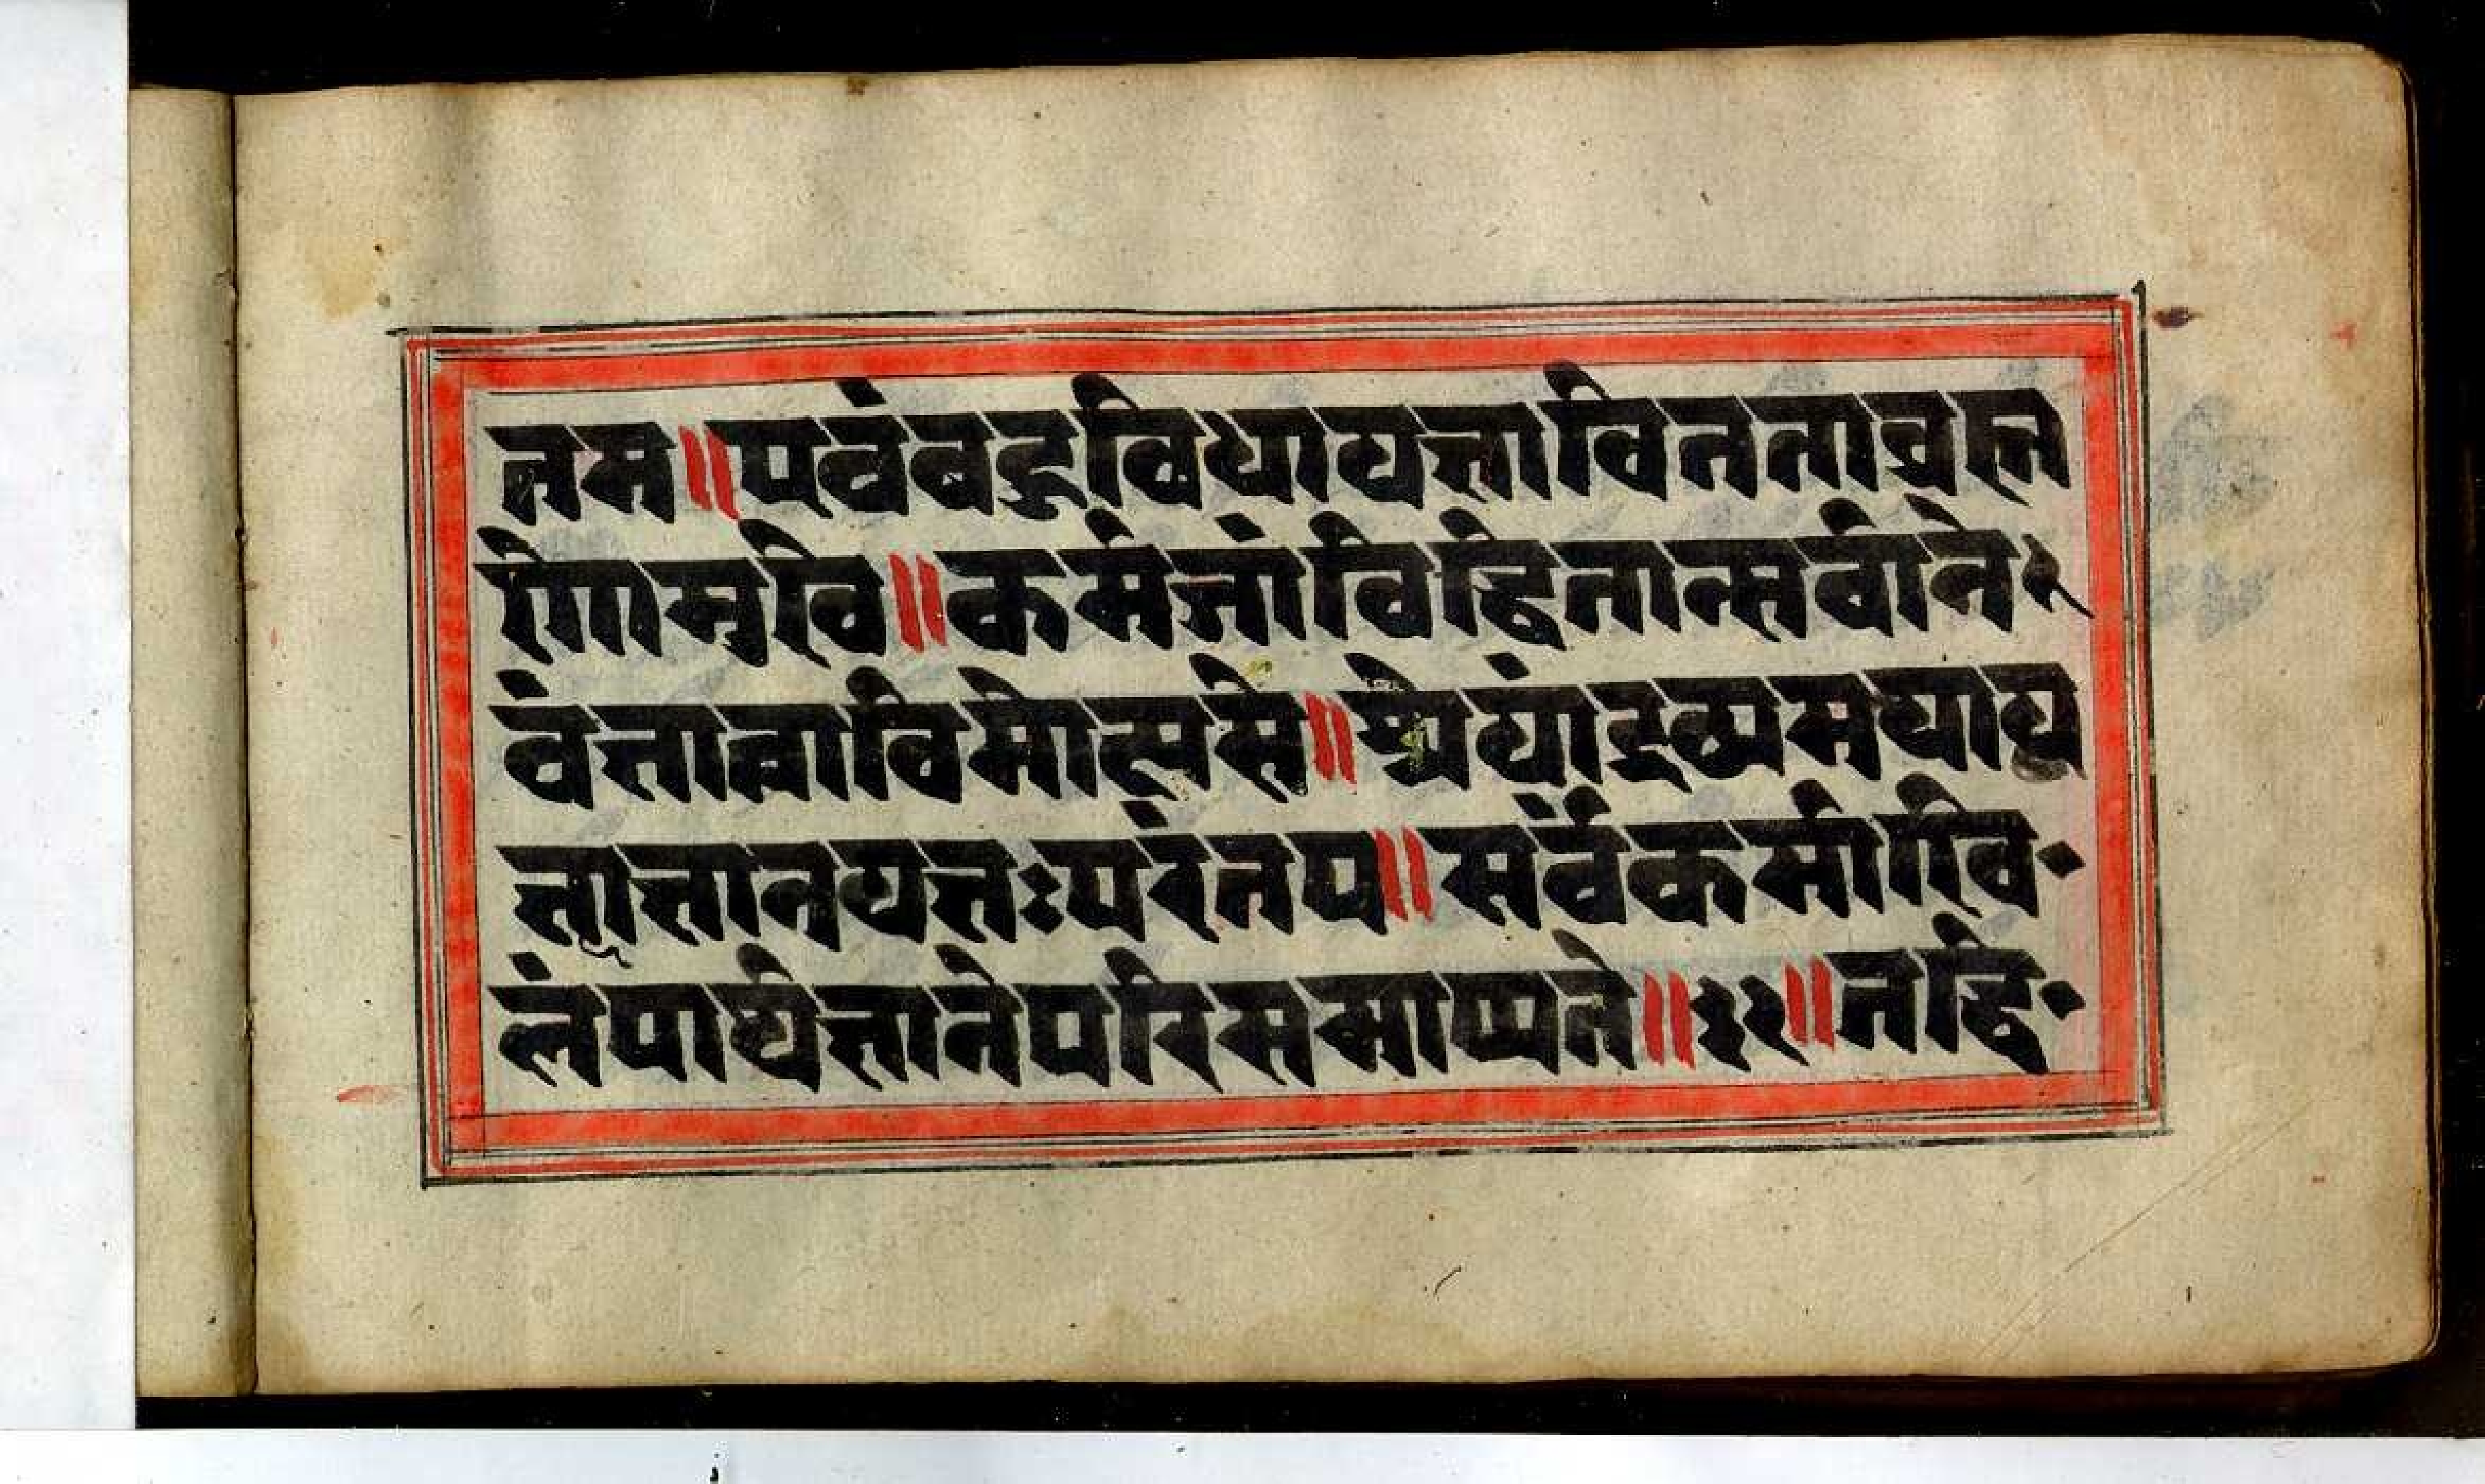 त्तम॥एवंबहुविधायज्ञाविततावह्म
णोमुखे॥कर्मजांविद्धितान्सर्वाने२
वंज्ञात्वाविमोक्ष्यसे॥श्रेयांद्रव्यमयाद्य
ज्ञाज्ञानयज्ञःपरंतप॥सर्वंकर्माखि॰
लंपार्थज्ञानेपरिसमाप्यते॥३२॥तद्धि॰